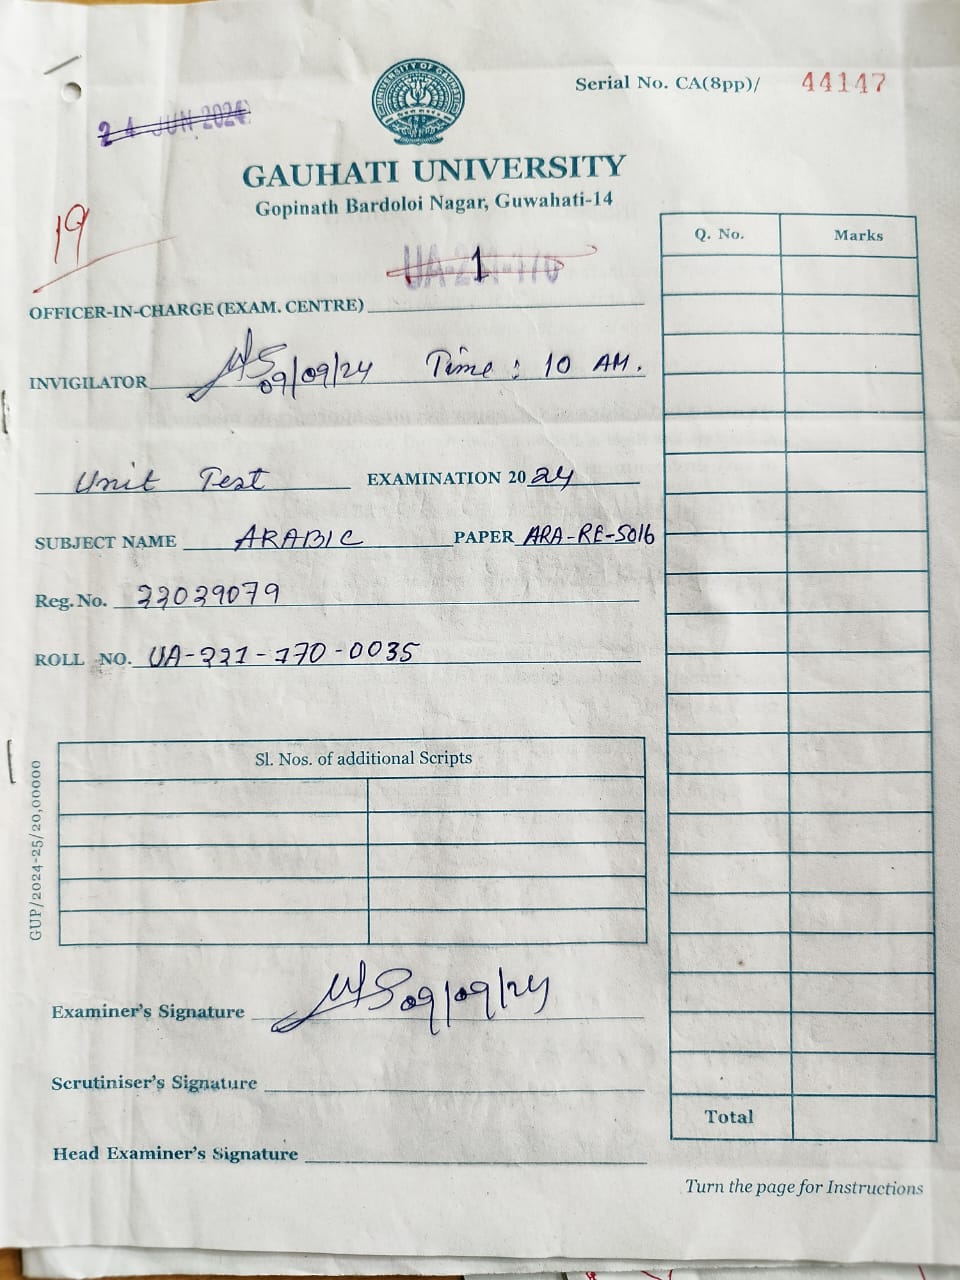 Serial No. CA(8pp)/ 44147
24 JUN 2024
UNIVERSITY OF GAUHATI
GAUHATI UNIVERSITY
Gopinath Bardoloi Nagar, Guwahati-14
19
Q. No. Marks
OFFICER-IN-CHARGE (EXAM. CENTRE)
INVIGILATOR 09/09/24 Time : 10 AM.
Unit Test EXAMINATION 2024
SUBJECT NAME ARABIC PAPER ARA-RE-5016
Reg. No. 22029079
ROLL NO. UA-221-170-0035
Sl. Nos. of additional Scripts
GUP/2024-25/20,00000
Examiner's Signature 09/09/24
Scrutiniser's Signature
Total
Head Examiner's Signature
Turn the page for Instructions